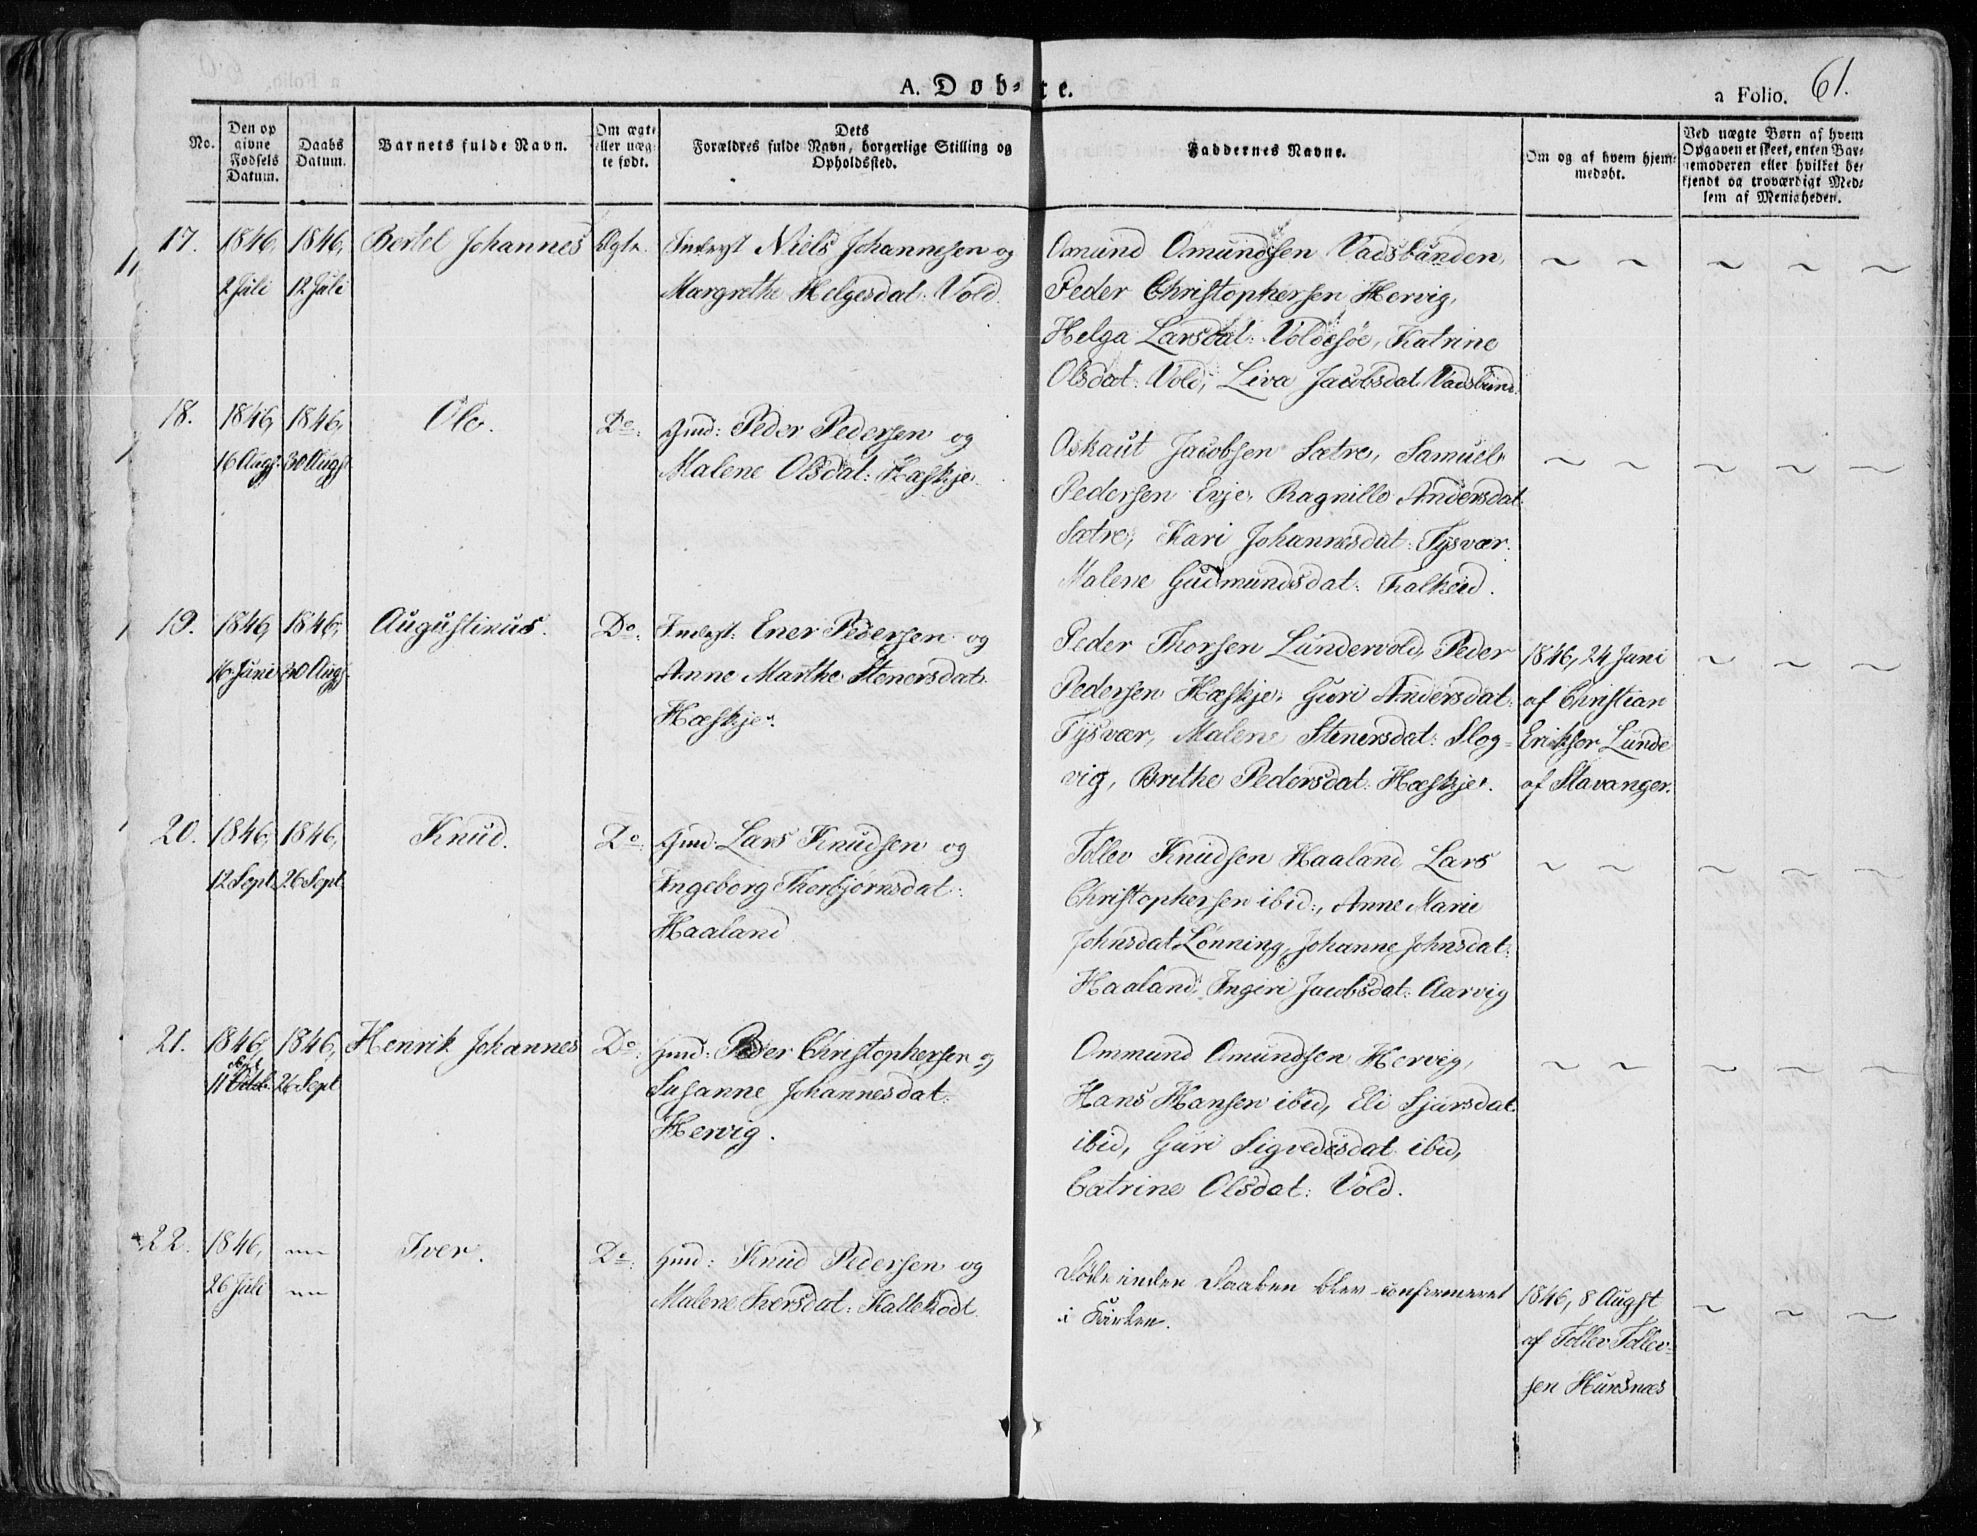 A. Døbte.
a Folio. 61.
No.
Den op
givne
Fødsels
Datum.
Daabs
Datum.
Barnets fulde Navn.
Om ægte
eller uæg-
te født.
Dets
Forældres fulde Navn, borgerlige Stilling og
Opholdssted.
Faddernes Navne.
Om og af hvem hjem-
medøbt.
Ved uægte Børn af hvem
Opgaven er skeet, enten Bar-
nemoderen eller hvilket be-
kjendt og troværdigt Med-
lem af Menigheden.
17.
1846,
2 Juli
1846,
12 Juli
Bertel Johannes
Ægte.
Inderst Niels Johannesen og
Margrethe Helgesdat: Vold.
Omund Omundsen Vadsbunden,
Peder Christophersen Hervig,
Helga Larsdat: Voldesøe, Katrine
Olsdat: Vold, Liva Jacobsdat Vadsbund.
18.
1846,
16 Augst
1846,
30 Augst
Ole.
Do.
Gmd: Peder Pedersen og
Malene Olsdat: Hæskje.
Oskaut Jacobsen Sætre, Samuel
Pedersen Evje, Ragnille Andersdat:
Sætre, Kari Johannesdat: Tysvær.
Malene Gudmundsdat: Falkeid.
19.
1846,
16 Juni
1846,
30 Augst.
Augustinus.
Do.
Inderst: Ener Pedersen og
Anne Marthe Stenersdat:
Hæskje.
Peder Thorsen Lundervold, Peder
Pedersen Hæskje, Guri Andersdat:
Tysvær, Malene Stenersdat: Slog=
vig, Brithe Pedersdat: Hæskje.
1846, 24 Juni
af Christian
Eriksen Lunde
af Stavanger.
20.
1846,
12 Sept.
1846,
26 Sept.
Knud.
Do.
Gmd: Lars Knudsen og
Ingeborg Thorbjørnsdat:
Haaland
Tollev Knudsen Haaland, Lars
Christophersen ibid:, Anne Marie
Johnsdat Lønning, Johanne Johnsdat:
Haaland, Ingeri Jacobsdat: Aarvig
21.
1846,
Sept.
11 Octob.
1846,
26 Sept
Henrik Johannes
Do.
Gmd: Peder Christophersen og
Susanne Johannesdat:
Hervig.
Ommund Omundsen Hervig,
Hans Hansen ibid, Eli Sjursdat.
ibid, Guri Sigvedsdat ibid,
Catrine Olsdat: Vold.
22.
1846,
26 Juli
Iver.
Do.
Gmd: Knud Pedersen og
Malene Iversdat: Kallekodt
Døde inden Daaben blev confirmeret
i Kirken.
1846, 8 Augst
af Tollev Tollev=
sen Hunsnæs